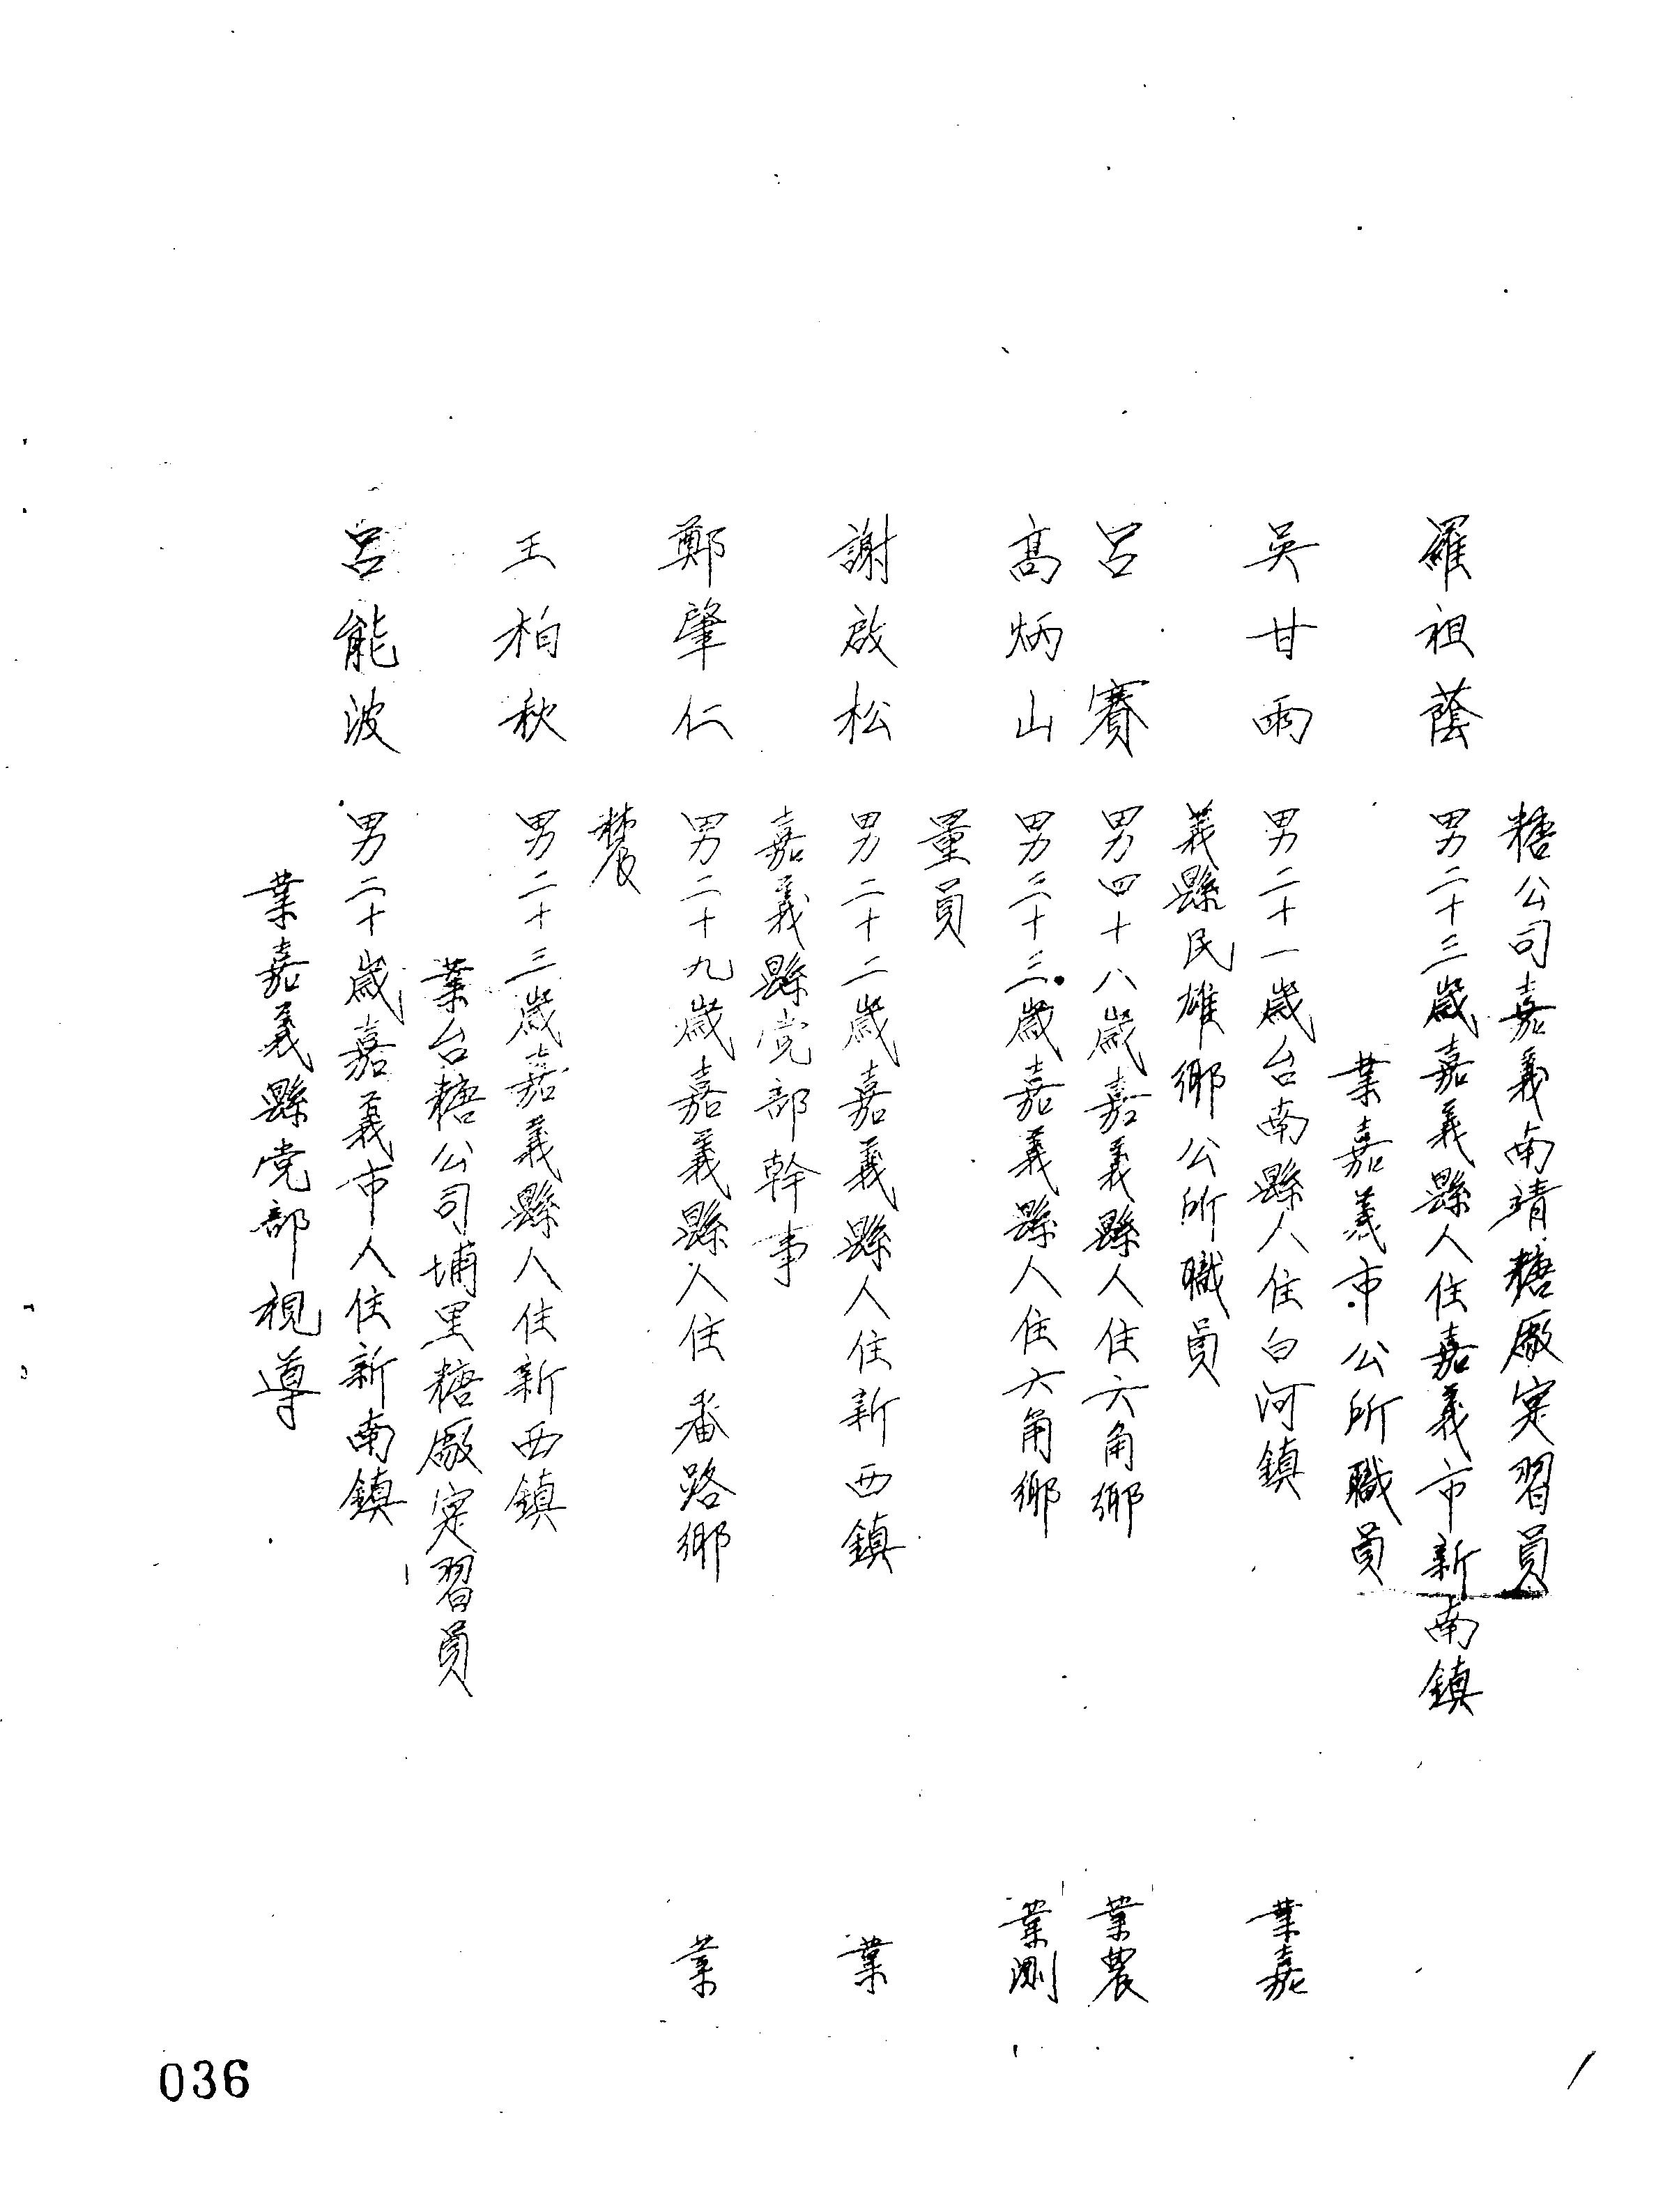 糖公司嘉義南靖糖廠寔習員
羅祖蔭 男二十三歲嘉義縣人住嘉義市新南鎮
業嘉義市公所職員
吳甘雨 男二十一歲台南縣人住白河鎮 業嘉
義縣民雄鄉公所職員
呂賽 男四十八歲嘉義縣人住六角鄉 業農
高炳山 男二十三歲嘉義縣人住六角鄉 業測
量員
謝啟松 男二十二歲嘉義縣人住新西鎮 業
嘉義縣党部幹事
鄭肇仁 男二十九歲嘉義縣人住番路鄉 業
農
王柏秋 男二十三歲嘉義縣人住新西鎮
業台糖公司埔里糖廠寔習員
呂能波 男二十歲嘉義市人住新南鎮
業嘉義縣党部視導
036